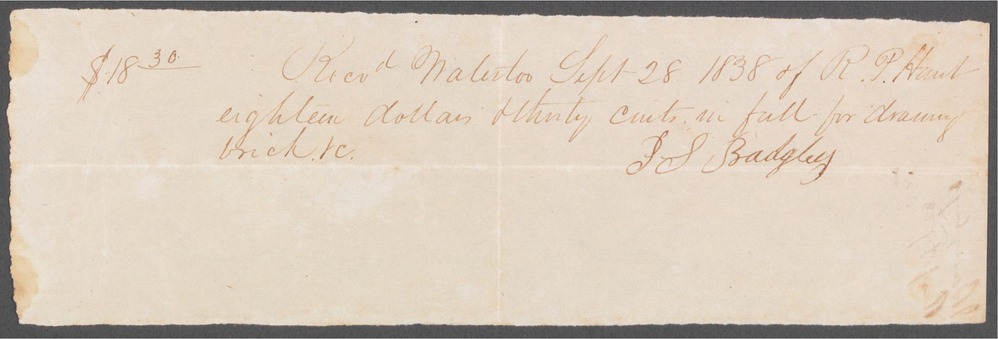 $18 30 Recd Waterloo Sept 28 1838 of R. P. Hunt
eighteen dollars & thirty cents in full for drawing
brick &c.
J S Badgley